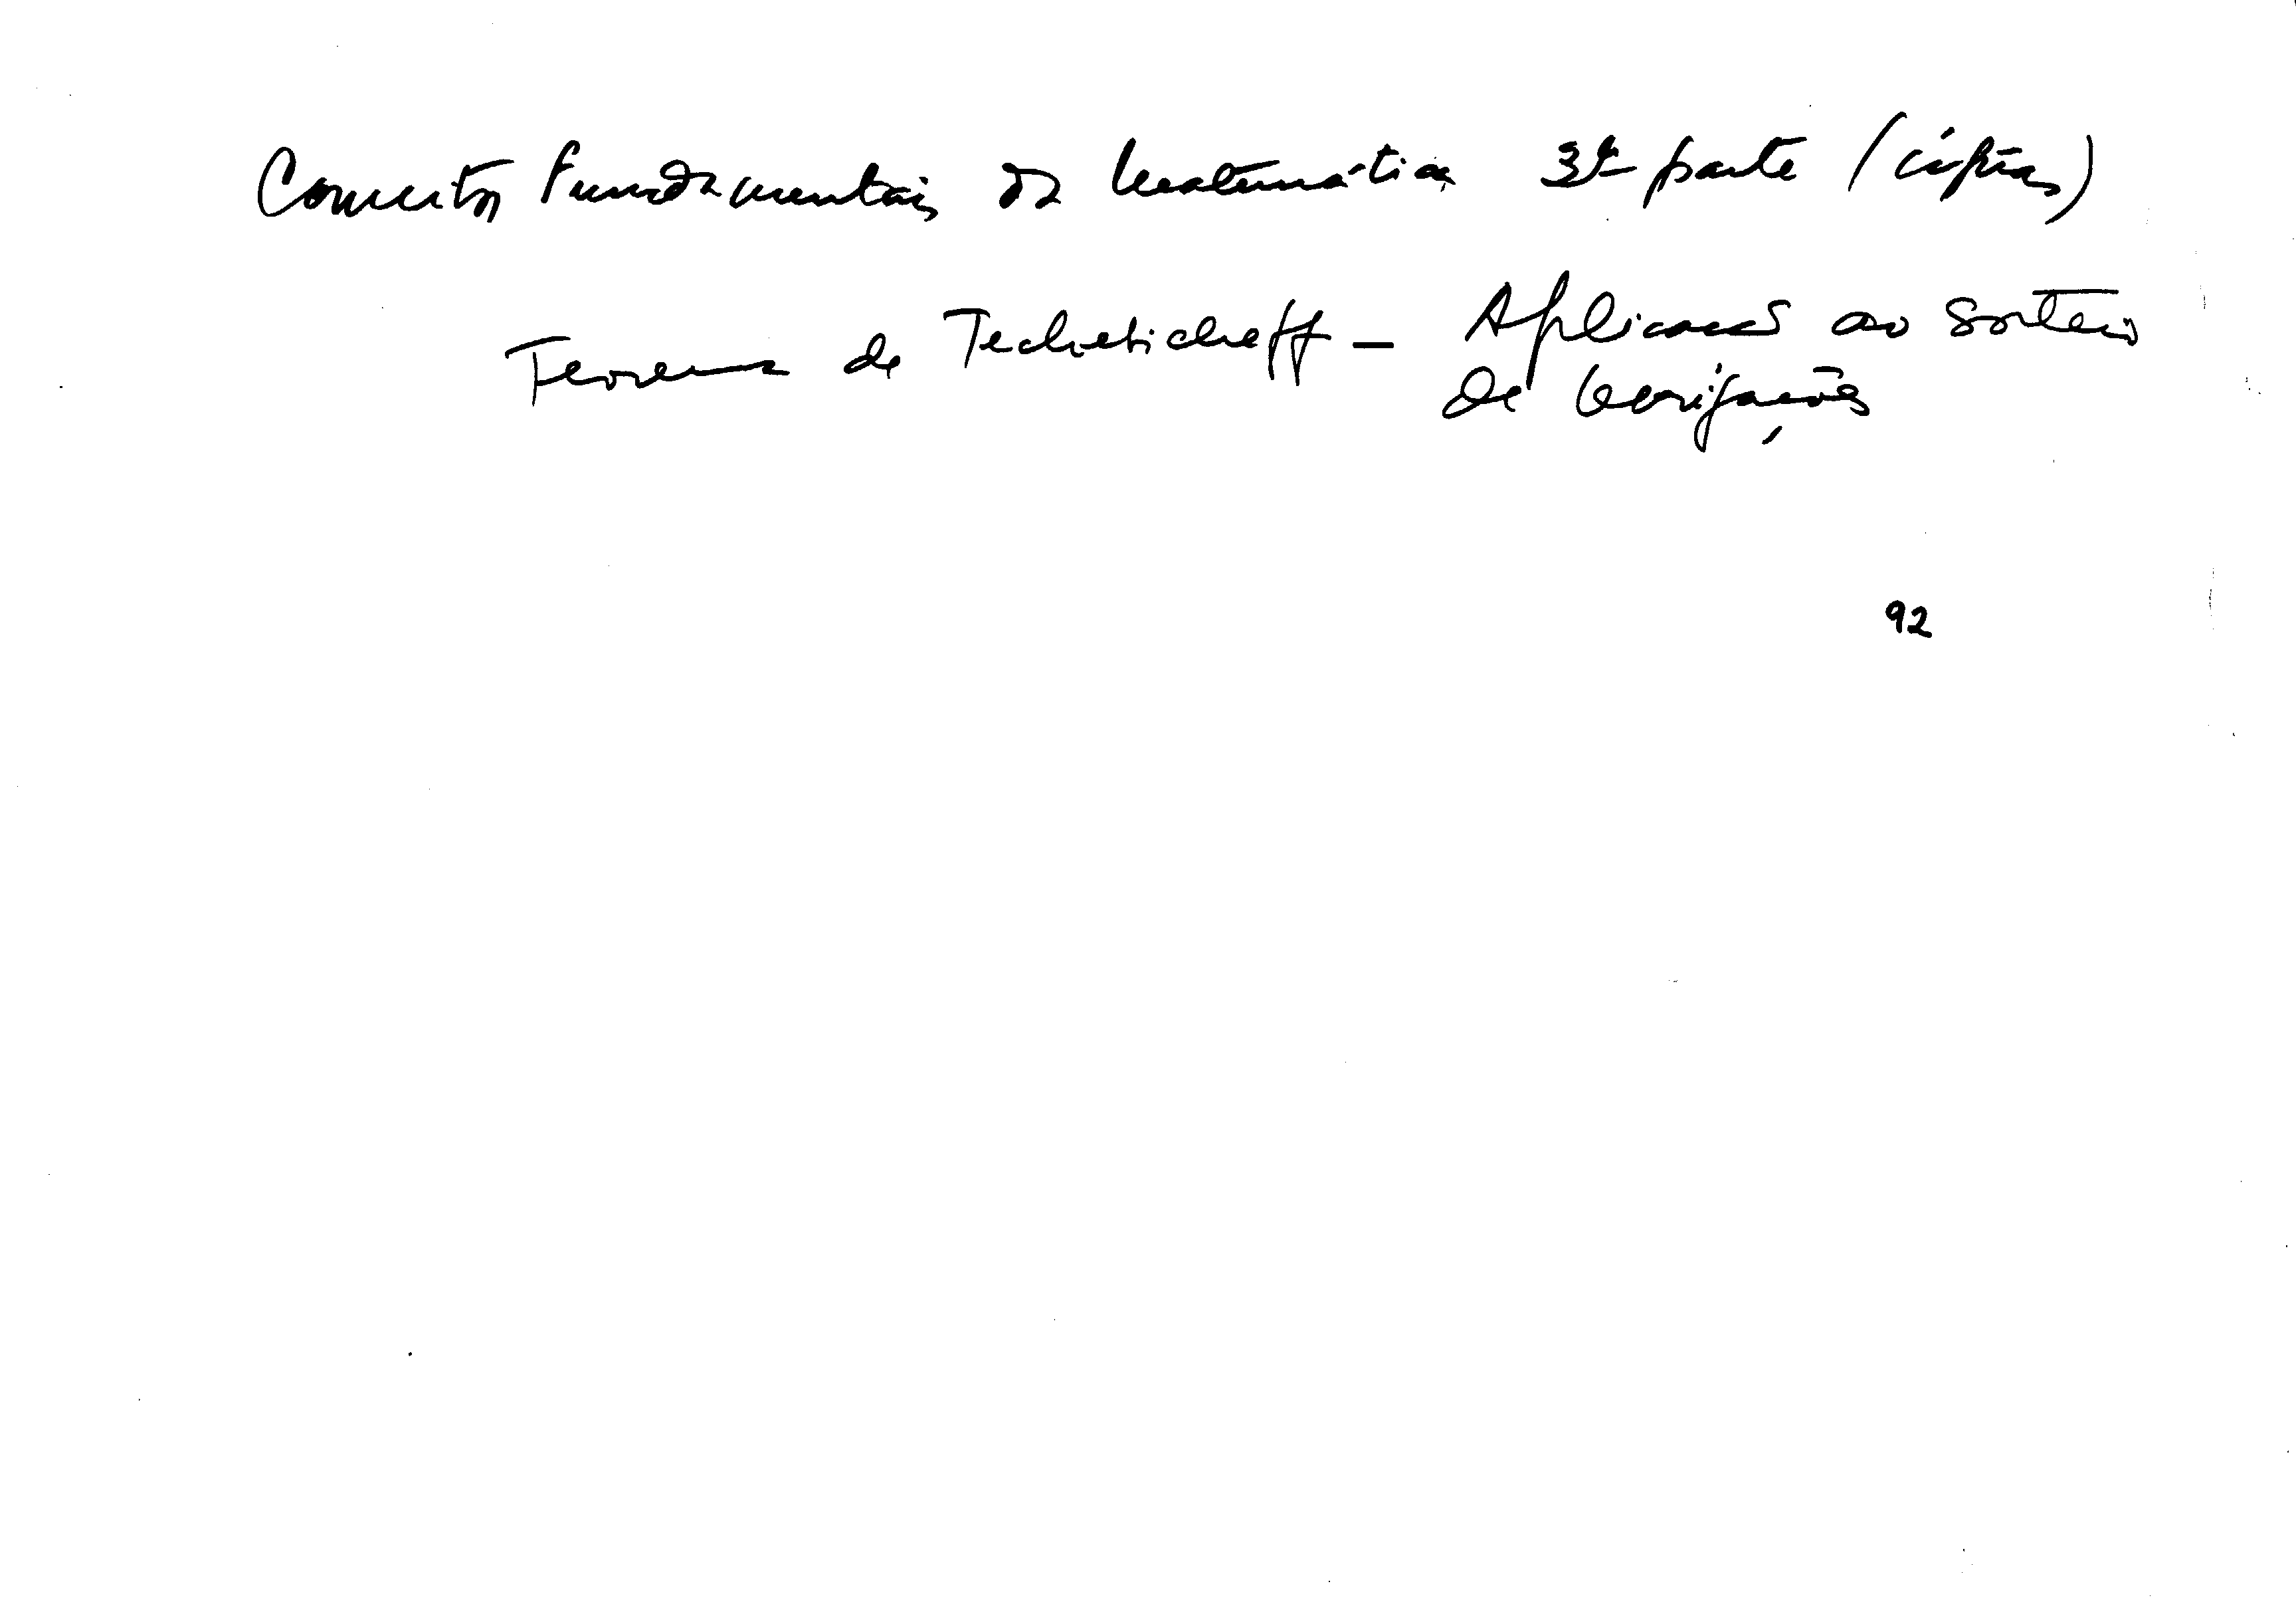 Conceitos Fundamentais da Matemática 3ª parte (cópias)
Teorema de Techebicheff – Aplicações ao sorteio
de obrigações
92